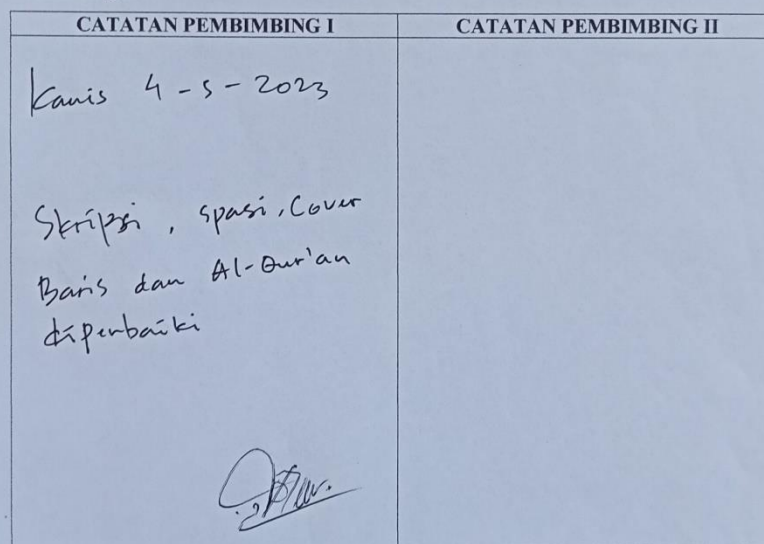 CATATAN PEMBIMBING I
CATATAN PEMBIMBING II
Kamis 4-5-2023
Skripsi, spasi, Cover
Baris dan Al-Qur'an
diperbaiki